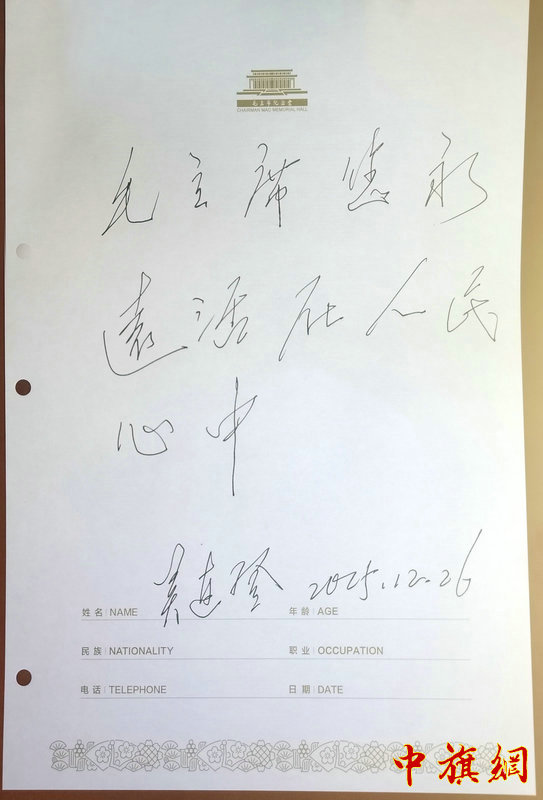 毛主席纪念堂
CHAIRMAN MAO MEMORIAL HALL
毛主席您永
遠活在人民
心中
吴连登 2025.12.26
姓名 NAME 年龄 AGE
民族 NATIONALITY 职业 OCCUPATION
电话 TELEPHONE 日期 DATE
中旗網